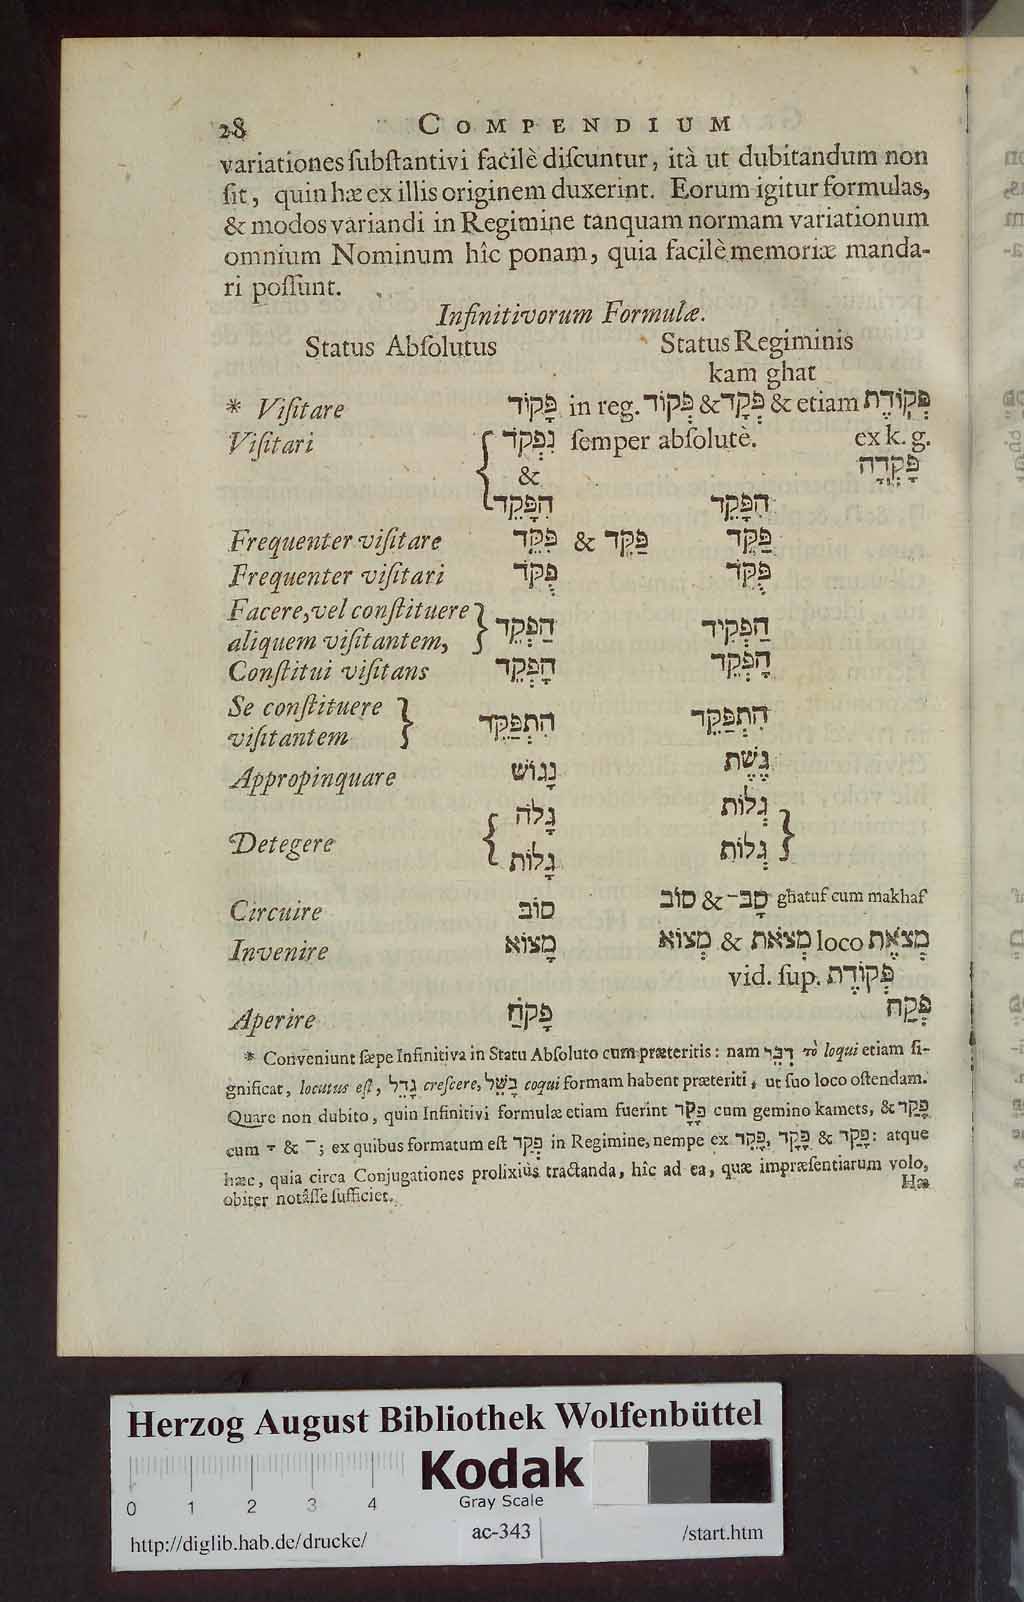 28 COMPENDIUM
variationes ſubſtantivi facilè diſcuntur, ità ut dubitandum non
ſit, quin hæ ex illis originem duxerint. Eorum igitur formulas,
& modos variandi in Regimine tanquam normam variationum
omnium Nominum hîc ponam, quia facilè memoriæ manda-
ri poſſunt.
Infinitivorum Formulæ.
Status Abſolutus Status Regiminis
kam ghat
* Viſitare פָּקוֹד in reg. פְּקוֹד & פְּקָד & etiam פְּקוֹדֶת
Viſitari { נִפְקֹד ſemper abſolutè. ex k. g.
& פָּקְדָה
הִפָּקֵד הִפָּקֵד
Frequenter viſitare פִּקֵּד & פַּקֵּד פַּקֵּד
Frequenter viſitari פֻּקֹּד פֻּקֹּד
Facere, vel conſtituere }
aliquem viſitantem, הַפְקֵד הַפְקִיד
Conſtitui viſitans הָפְקֵד הָפְקֵד
Se conſtituere }
viſitantem הִתְפַּקֵּד הִתְפַּקֵּד
Appropinquare נָגוֹשׁ גֶּשֶׁת
{ גָּלֹה גְּלוֹת }
Detegere
גָּלוֹת גְּלוֹת
Circuire סוֹב סוֹב & סָב־ ghatuf cum makhaf
Invenire מָצוֹא מְצוֹא & מְצֹאת loco מְצֹאֶת
vid. ſup. פְּקוֹדֶת
Aperire פָּקֹחַ פְּקַח
* Conveniunt ſæpe Infinitiva in Statu Abſoluto cum præteritis: nam דִּבֵּר τὸ loqui etiam ſi-
gnificat, locutus eſt, גָּדֵל creſcere, בָּשֵׁל coqui formam habent præteriti, ut ſuo loco oſtendam.
Quare non dubito, quin Infinitivi formulæ etiam fuerint פָּקָד cum gemino kamets, & פָּקַד
cum ָ & ַ; ex quibus formatum eſt פְּקַד in Regimine, nempe ex פָּקָד, פָּקָד & פָּקַד: atque
hæc, quia circa Conjugationes prolixiùs tractanda, hîc ad ea, quæ impræſentiarum volo,
obiter notâſſe ſufficiet.
Hæ
Herzog August Bibliothek Wolfenbüttel
Kodak
Gray Scale
0 1 2 3 4
http://diglib.hab.de/drucke/ ac-343 /start.htm